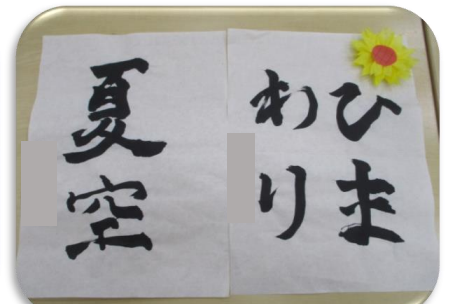 ひま
わり
夏空